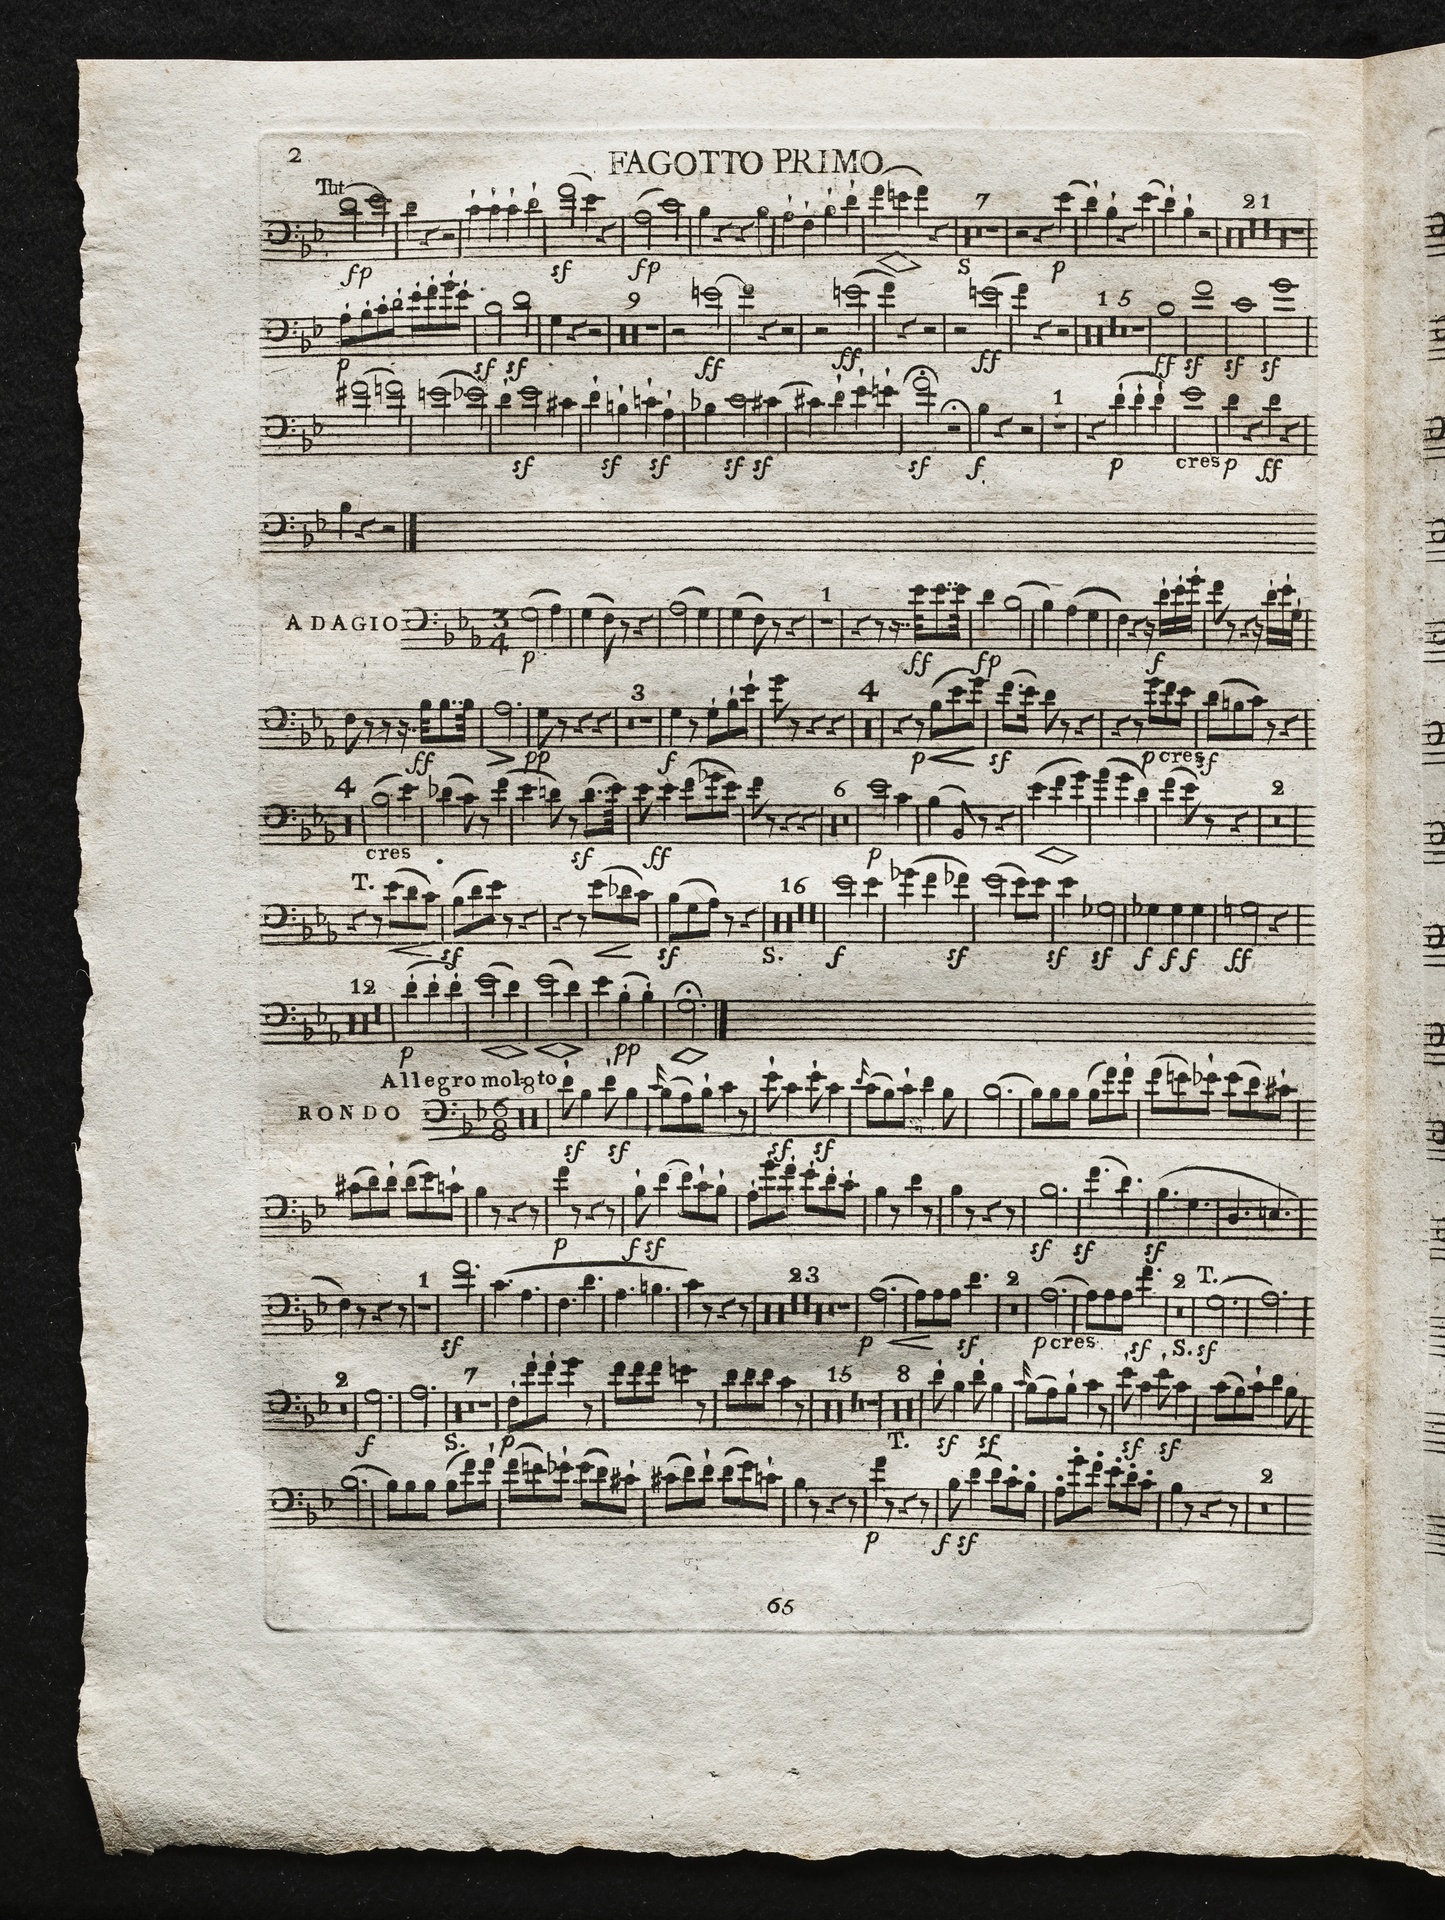 2
FAGOTTO PRIMO
Tut
7 21
fp sf fp S p
9 15
p sf sf ff ff ff ff sf sf sf
1
sf sf sf sf sf sf f. p cres p ff
ADAGIO 3 4 1
p ff fp f
3 4
ff > pp f p < sf p cres sf
4 6 2
cres . sf ff p
T. 16
< sf < sf S. f sf sf sf f f f ff
12
p pp
Allegro molto 8
RONDO 6 8
sf sf sf sf
p f sf sf sf sf
1 23 2 2 T.
sf p < sf p cres. sf S. sf
2 7 15 8
f S. p T. sf sf sf sf
2
p f sf
65